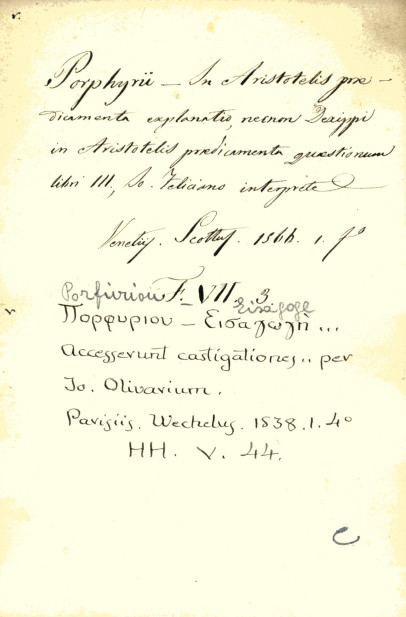 Porphyrii – In Aristotelis præ-
dicamenta explanatio, necnon Dexippi
in Aristotelis prædicamenta quæstionum
libri III, Io. Feliciano interprete
Venetiis. Scottus. 1566. 1. fº
F. VII. 3
Porfiriou Eisagoge
Πορφυριου – Εισαγωγὴ ...
Accesserunt castigationes .. per
Jo. Olivarium.
Parisiis. Wechelus. 1538. 1. 4º
HH. V. 44.
C